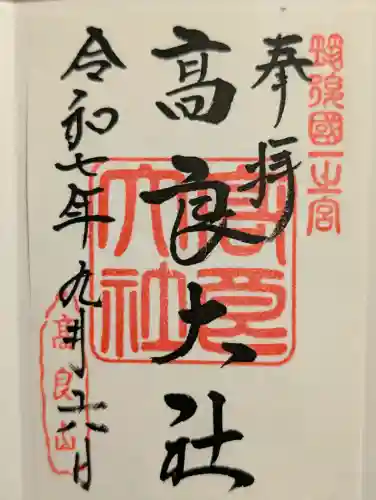 筑後國一之宮
奉拝
高良大社
高良大社
令和七年九月十六日
高良山